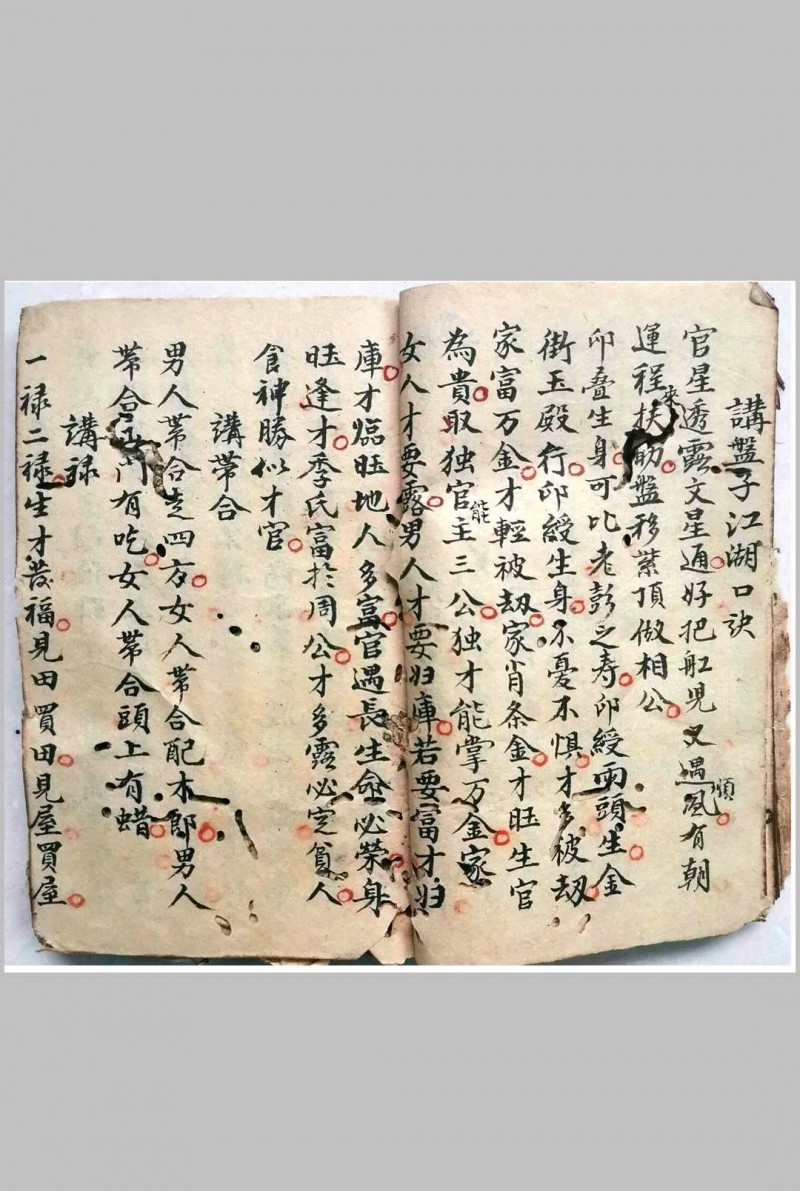 講盤子江湖口訣
官星透露文星通好把舡児又遇順風有朝
運程來扶助盤移紫頂做相公
卬叠生身可比老彭之寿卬綬両頭生金
街玉殿行卬綬生身不憂不惧才多被刼
家富万金才輕被刼家肖条金才旺生官
為貴取独官能主三公独才能掌万金家
女人才要露男人才要归庫若要富才归
庫才臨旺地人多富官遇長生命必荣身
旺逢才季氏富於周公才多露必定貧人
食神勝似才官
講帯合
男人帯合走四方女人帯合配木郎男人
帯合門有吃女人帯合頭上有蜡
講禄
一禄二禄生才發福見田買田見屋買屋